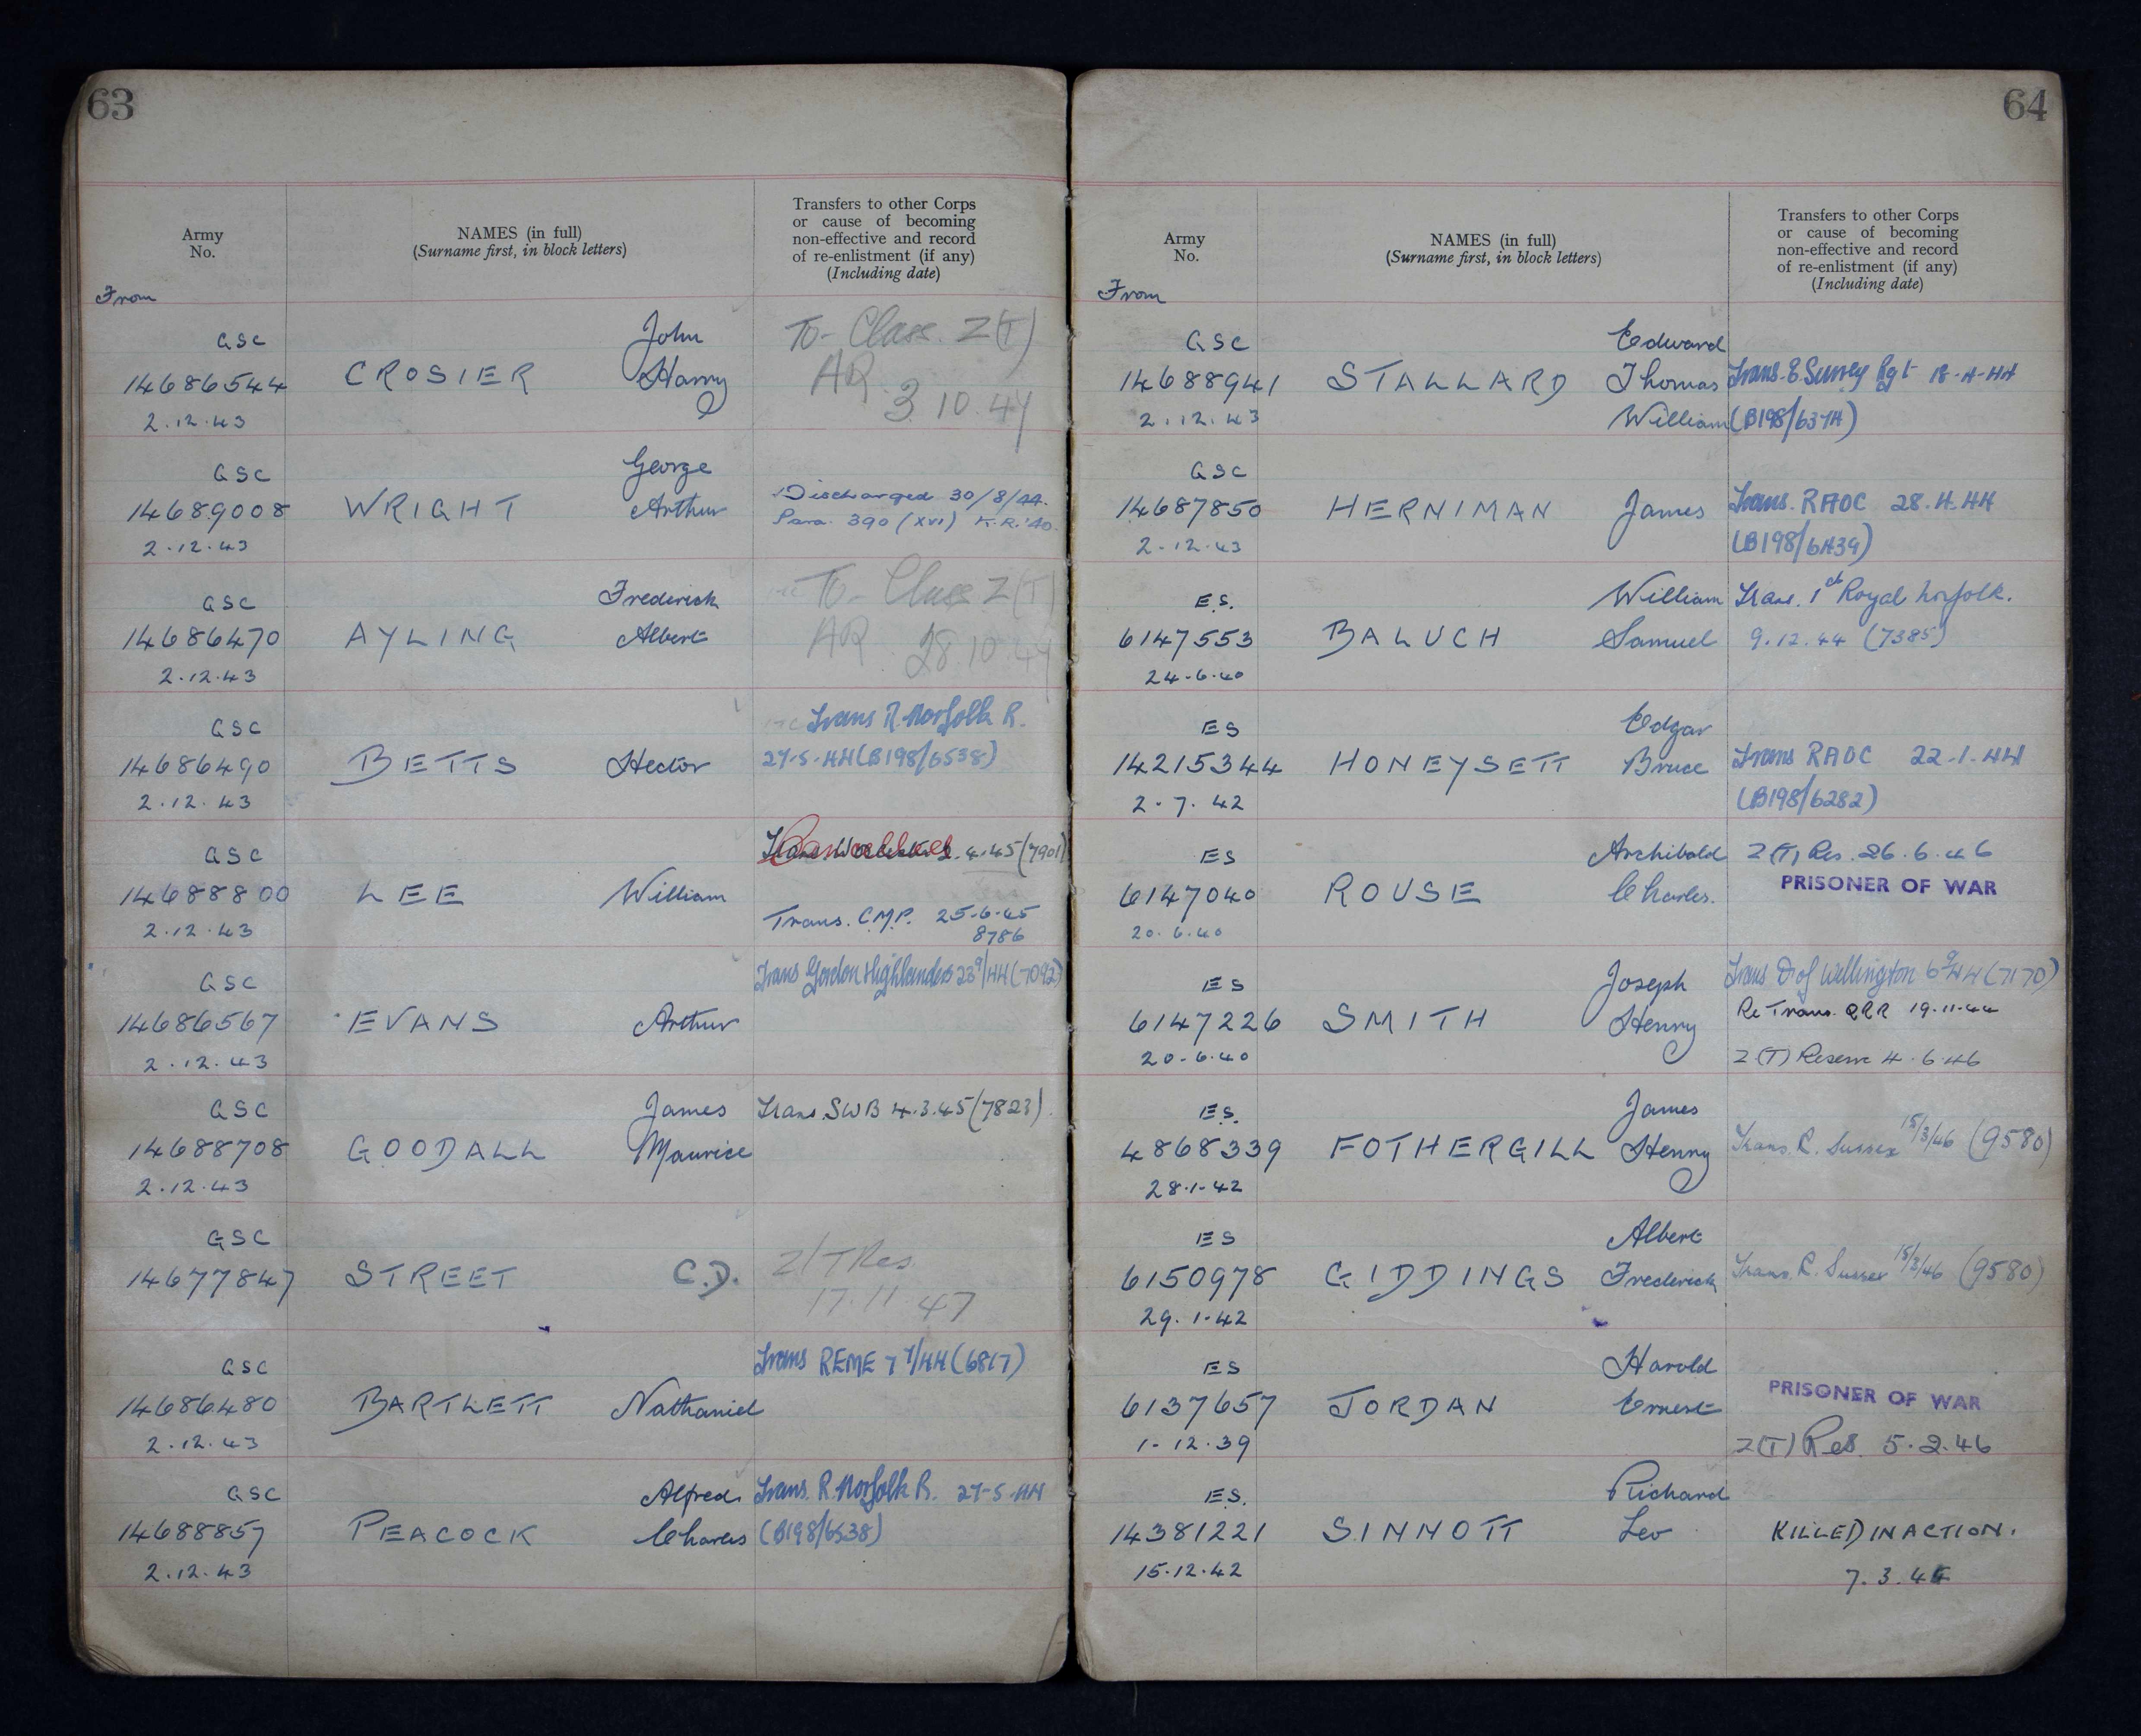 63
Army
No.
NAMES (in full)
(Surname first, in block letters)
Transfers to other Corps
or cause of becoming
non-effective and record
of re-enlistment (if any)
(Including date)
From
GSC John To- Class. Z(T)
14686544 CROSIER Harry AR
2.12.43 3 10.47
GSC George
14689008 WRIGHT Arthur Discharged 30/8/44.
2.12.43 Para. 390 (XVI) K.R.'40.
GSC Frederick To- Class Z(T)
14686470 AYLING Albert AR 28.10.47
2.12.43
GSC Trans R. Norfolk R.
14686490 BETTS Hector 27-5-44 (B198/6538)
2.12.43
GSC Cancelled 4.45 (7901)
14688800 LEE William
2.12.43 Trans. C.M.P. 25-6-45
8786
GSC Trans Gordon Highlanders 23 9/44 (7092)
14686567 EVANS Arthur
2.12.43
GSC James Trans. SWB 4.3.45 (7823).
14688708 GOODALL Maurice
2.12.43
GSC Z/T Res.
14677847 STREET C.D. 17.11.47
GSC Trans REME 7 7/44 (6817)
14686480 BARTLETT Nathaniel
2.12.43
GSC Alfred Trans. R. Norfolk R. 27-5-44
14688857 PEACOCK Charles (B198/6538)
2.12.43
64
Army
No.
NAMES (in full)
(Surname first, in block letters)
Transfers to other Corps
or cause of becoming
non-effective and record
of re-enlistment (if any)
(Including date)
From
GSC Edward
14688941 STALLARD Thomas Trans. E. Surrey Rgt 18-4-44
2.12.43 William (B198/6374)
GSC
14687850 HERNIMAN James Trans. RAOC 28.4.44
2-12.43 (B198/6439)
E.S. William Trans. 1st Royal Norfolk.
6147553 BALUCH Samuel 9.12.44 (7385)
24-6-40
ES Edgar
14215344 HONEYSETT Bruce Trans RAOC 22-1-44
2-7.42 (B198/6282)
ES Archibald Z(T) Res. 26.6.46
6147040 ROUSE Charles. PRISONER OF WAR
20.6.40
ES Joseph Trans D of Wellington 6 9/44 (7170)
6147226 SMITH Henry Re Trans. QRR 19.11.44
20-6.40 Z(T) Reserve 4.6.46
E.S. James
4868339 FOTHERGILL Henry Trans. R. Sussex 15/3/46 (9580)
28.1-42
ES Albert
6150978 GIDDINGS Frederick Trans. R. Sussex 15/3/46 (9580)
29.1-42
ES Harold
6137657 JORDAN Ernest PRISONER OF WAR
1-12.39 Z(T) Res. 5.2.46
E.S. Richard
14381221 SINNOTT Leo KILLED IN ACTION.
15.12.42 7.3.44